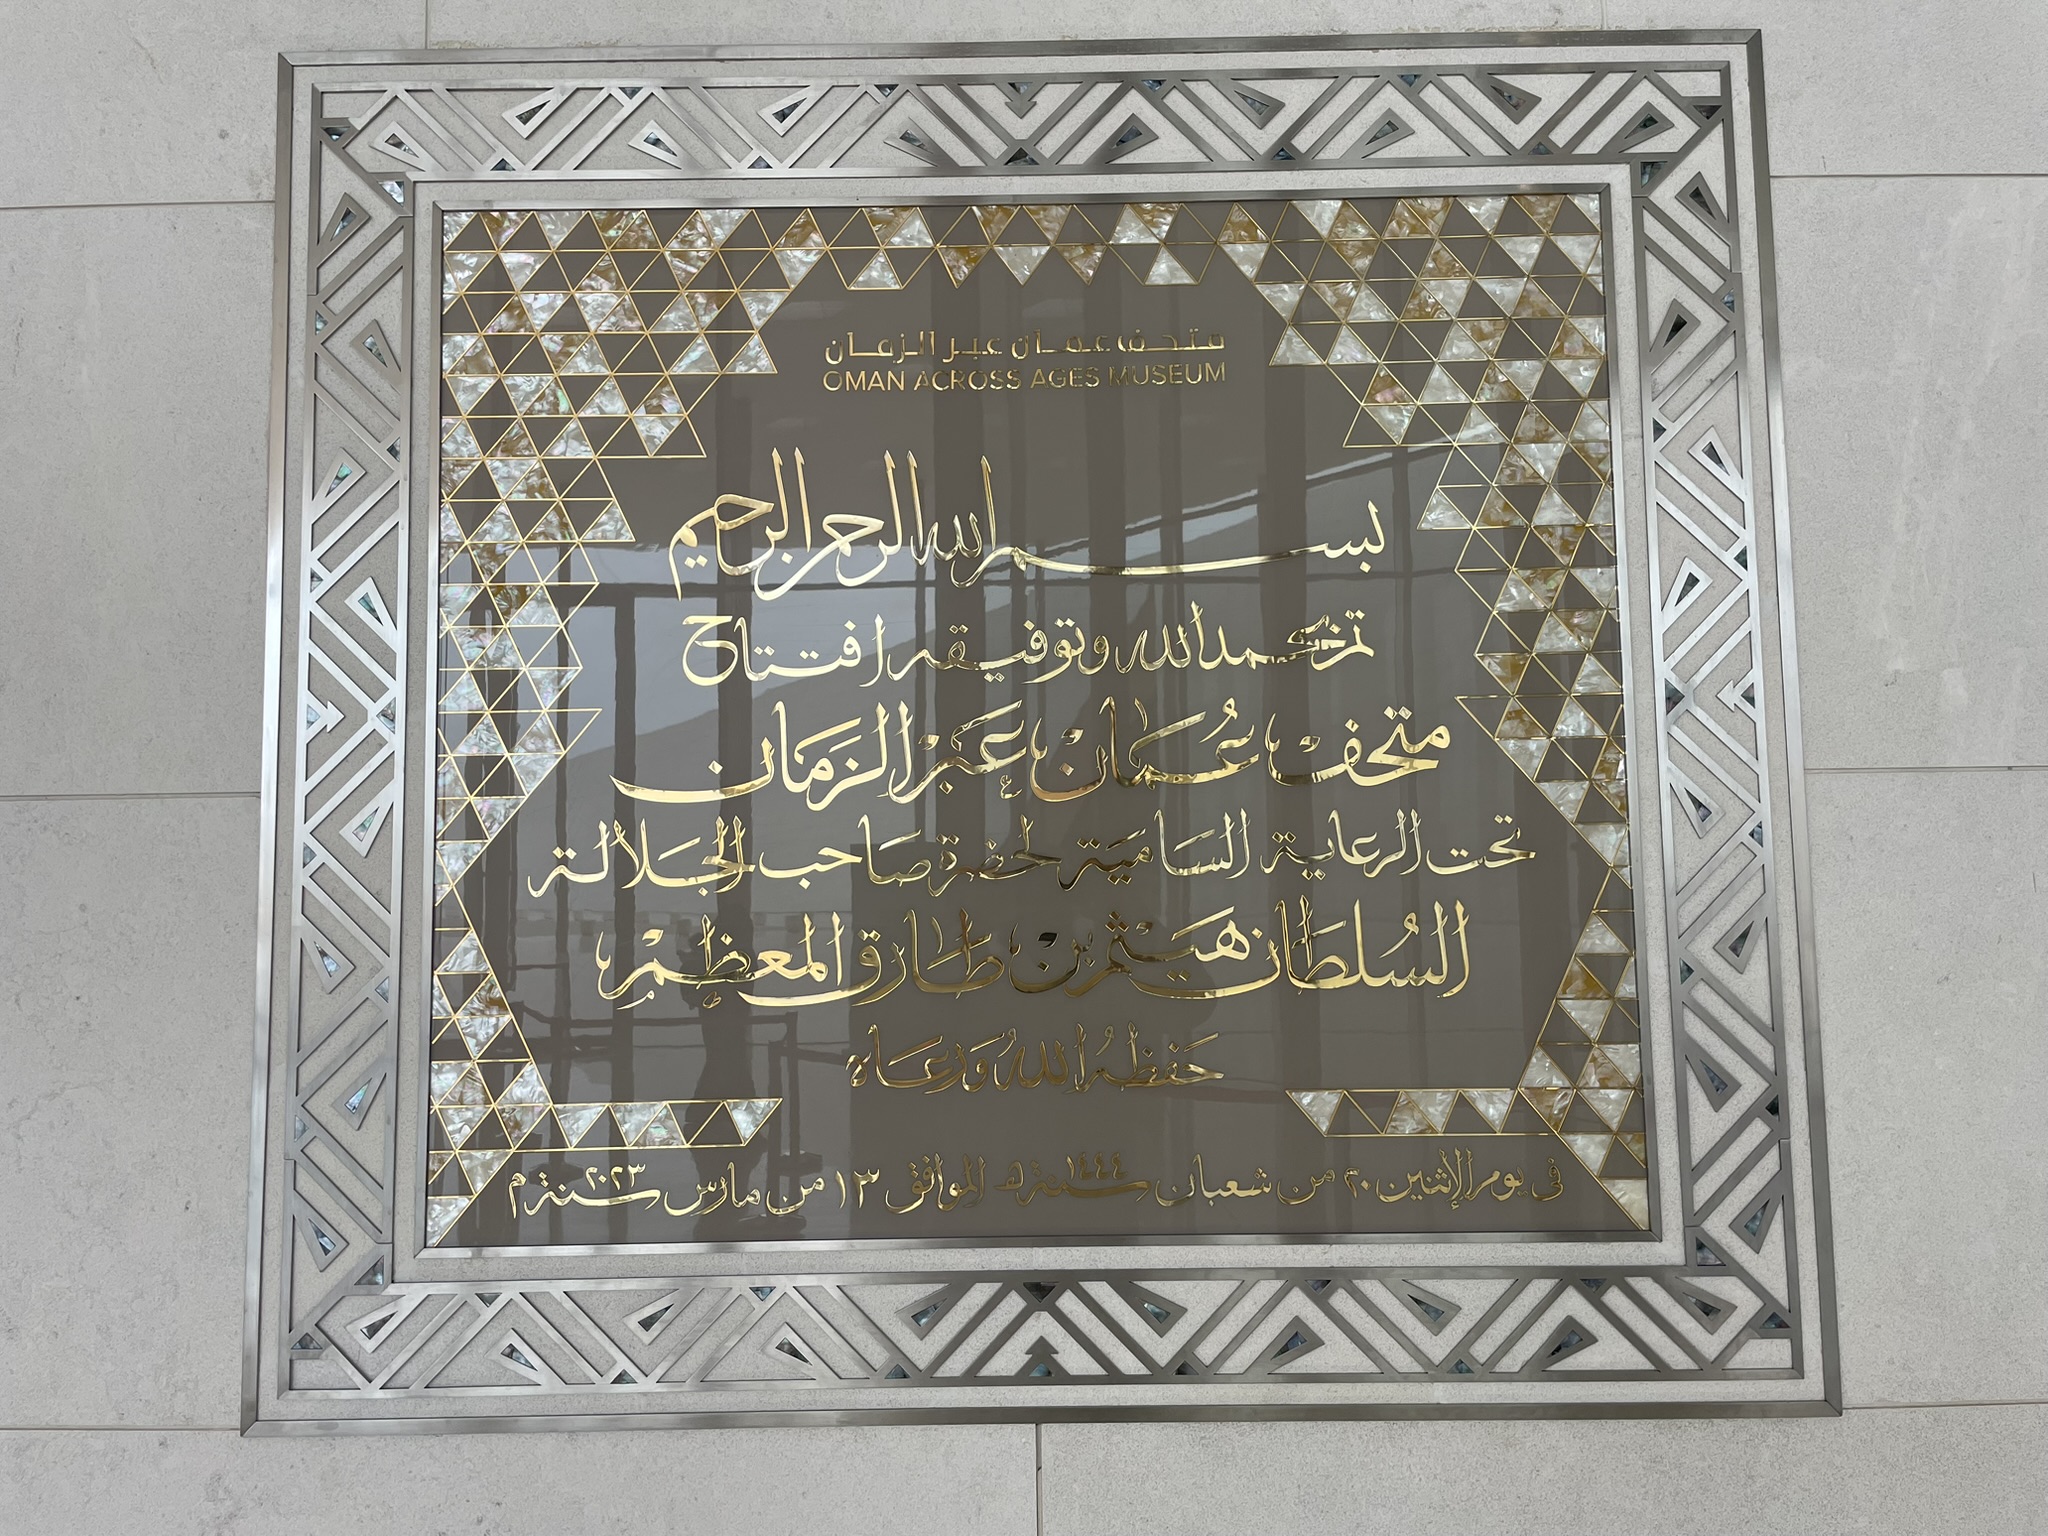 متحف عمان عبر الزمان
OMAN ACROSS AGES MUSEUM
بسم الله الرحمن الرحيم
تم بحمد الله وتوفيقه افتتاح
متحف عُمان عَبْر الزَمَان
تحت الرعاية السَامِيَة لحضرة صَاحب الجَلالة
السُلطَان هَيْثم بن طَارق المعظم
حَفظهُ اللهُ وَرعَاه
في يوم الإثنين ٢٠ من شعبان سنة ١٤٤٤ه الموافق ١٣ من مارس سنة ٢٠٢٣م